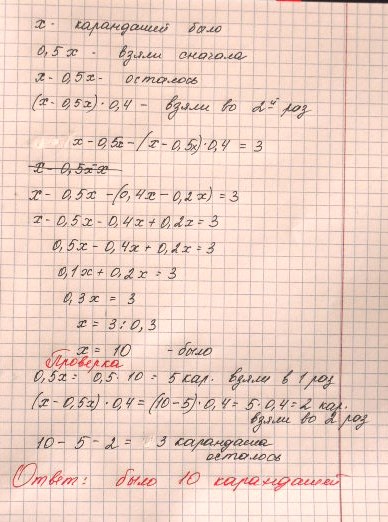 x - карандашей было
0,5x - взяли сначала
x-0,5x- осталось
(x-0,5x)·0,4 - взяли во 2й раз
x-0,5x-(x-0,5x)·0,4 = 3
x - 0,5x-x
x - 0,5x -(0,4x-0,2x) = 3
x-0,5x-0,4x+0,2x=3
0,5x-0,4x+0,2x=3
0,1x+0,2x = 3
0,3x = 3
x = 3:0,3
x = 10 - было
Проверка
0,5x= 0,5·10 = 5 кар. взяли в 1 раз
(x-0,5x)·0,4=(10-5)·0,4=5·0,4=2 кар.
взяли во 2 раз
10-5-2= 3 карандаша
осталось
Ответ: было 10 карандашей